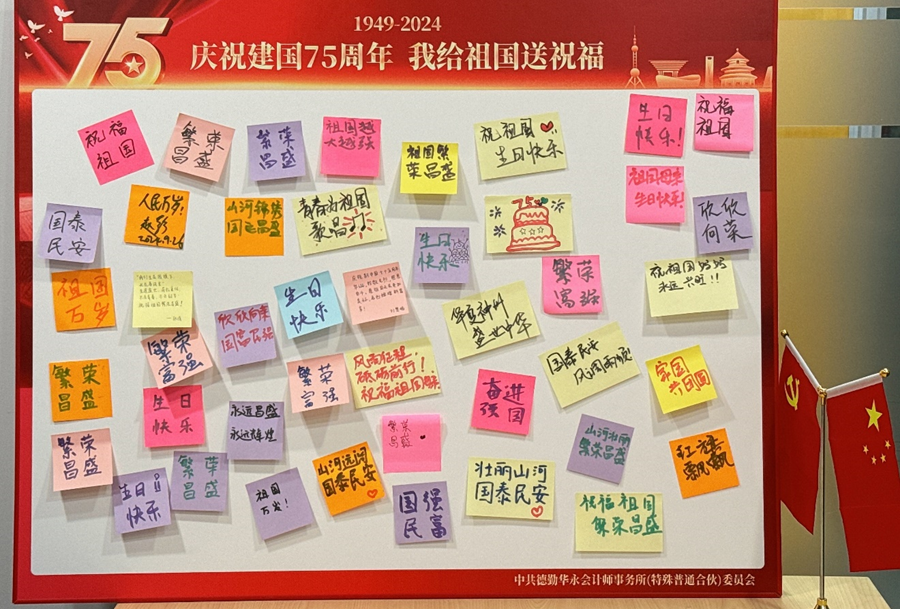 75
1949-2024
庆祝建国75周年 我给祖国送祝福
祝福
祖国
繁荣
昌盛
繁荣
昌盛
祖国越
来越强
祖国繁
荣昌盛
祝祖国
生日快乐
生日
快乐!
祝福
祖国
国泰
民安
人民万岁!
2024.9.26
山河锦绣
国运昌盛
青春为祖国
歌唱
生日
快乐
75
祖国母亲
生日快乐!
欣欣
向荣
祖国
万岁
欣欣向荣
国富民强
生日
快乐
华夏神州
盛世中华
繁荣
富强
祝祖国妈妈
永远共旺!!
繁荣
富强
繁荣
昌盛
生日
快乐
永远昌盛
永远辉煌
繁荣
富强
风雨征程,
砥砺前行!
祝福祖国
繁荣
昌盛
奋进
强国
国泰民安
风调雨顺
家国
共团圆
繁荣
昌盛
生日
快乐
繁荣
昌盛
祖国
万岁!
山河远阔
国泰民安
国强
民富
壮丽山河
国泰民安
山河壮丽
繁荣昌盛
红旗
飘飘
祝福祖国
繁荣昌盛
中共德勤华永会计师事务所(特殊普通合伙)委员会